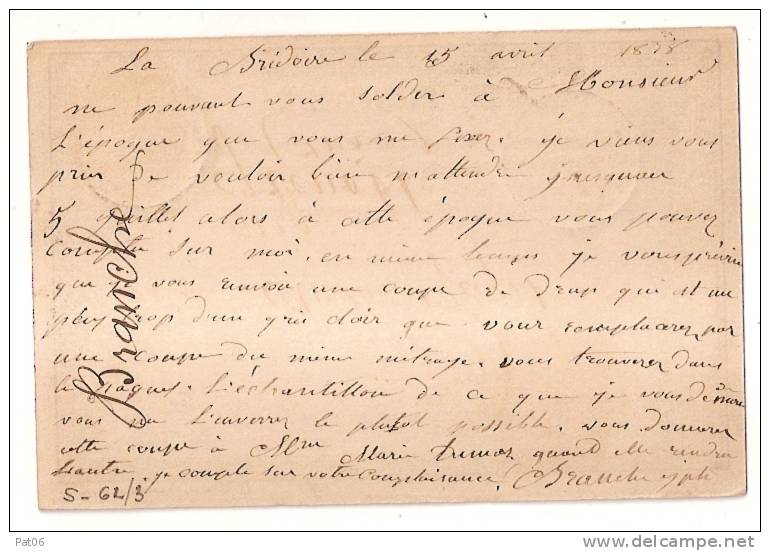 La Bridoire le 15 avril 1878
Monsieur
ne pouvant vous solder à
l'époque que vous me fixez. je viens vous
prier de vouloir bien m'attendre jusquau
5 Juillet alors à cette époque vous pouvez
compter sur moi, en même temps je vous préviens
que je vous envoie une coupe de drap qui est un
peu trop d'un gris clair que vous remplacerez par
une coupe du même métrage. vous trouverez dans
le paquet l'échantillon de ce que je vous demande
vous me l'enverrez le plutot possible, vous donnerez
cette coupe à Mme Marie quand elle rendra
l'autre. je compte sur votre Complaisance! Branche jph
Branche
S-62/3
Pat06
delcampe.net